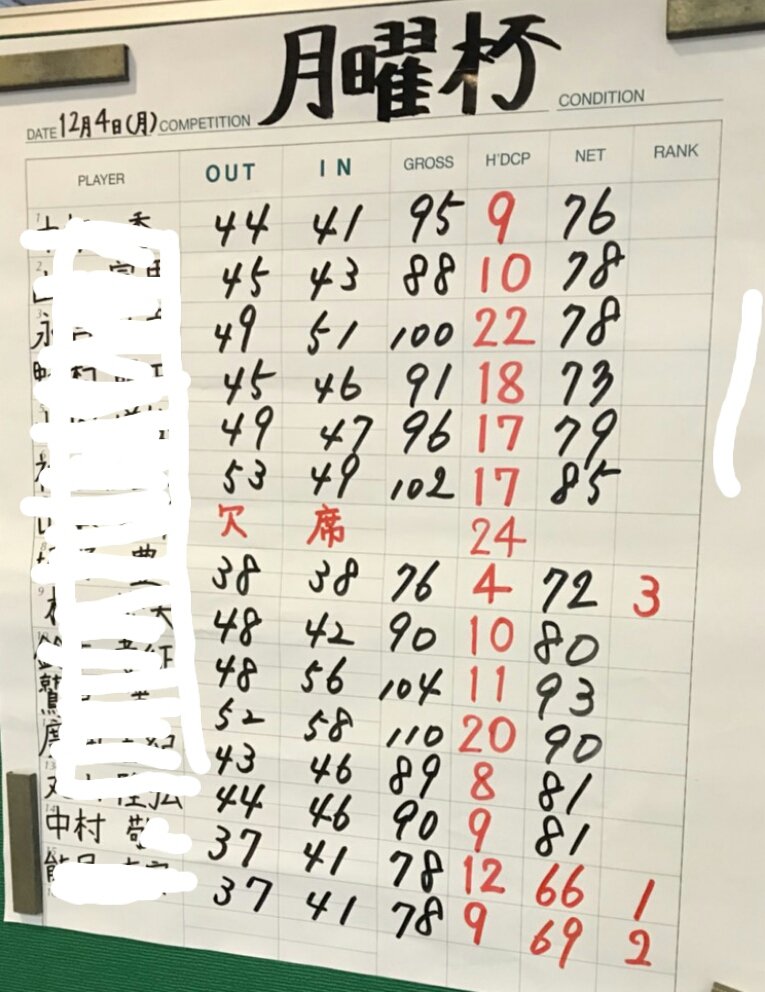 月曜杯
DATE 12月4日(月) COMPETITION CONDITION
PLAYER OUT IN GROSS H'DCP NET RANK
44 41 95 9 76
45 43 88 10 78
49 51 100 22 78
45 46 91 18 73
49 47 96 17 79
53 49 102 17 85
欠 席 24
38 38 76 4 72 3
48 42 90 10 80
48 56 104 11 93
52 58 110 20 90
43 46 89 8 81
44 46 90 9 81
中村 37 41 78 12 66 1
37 41 78 9 69 2